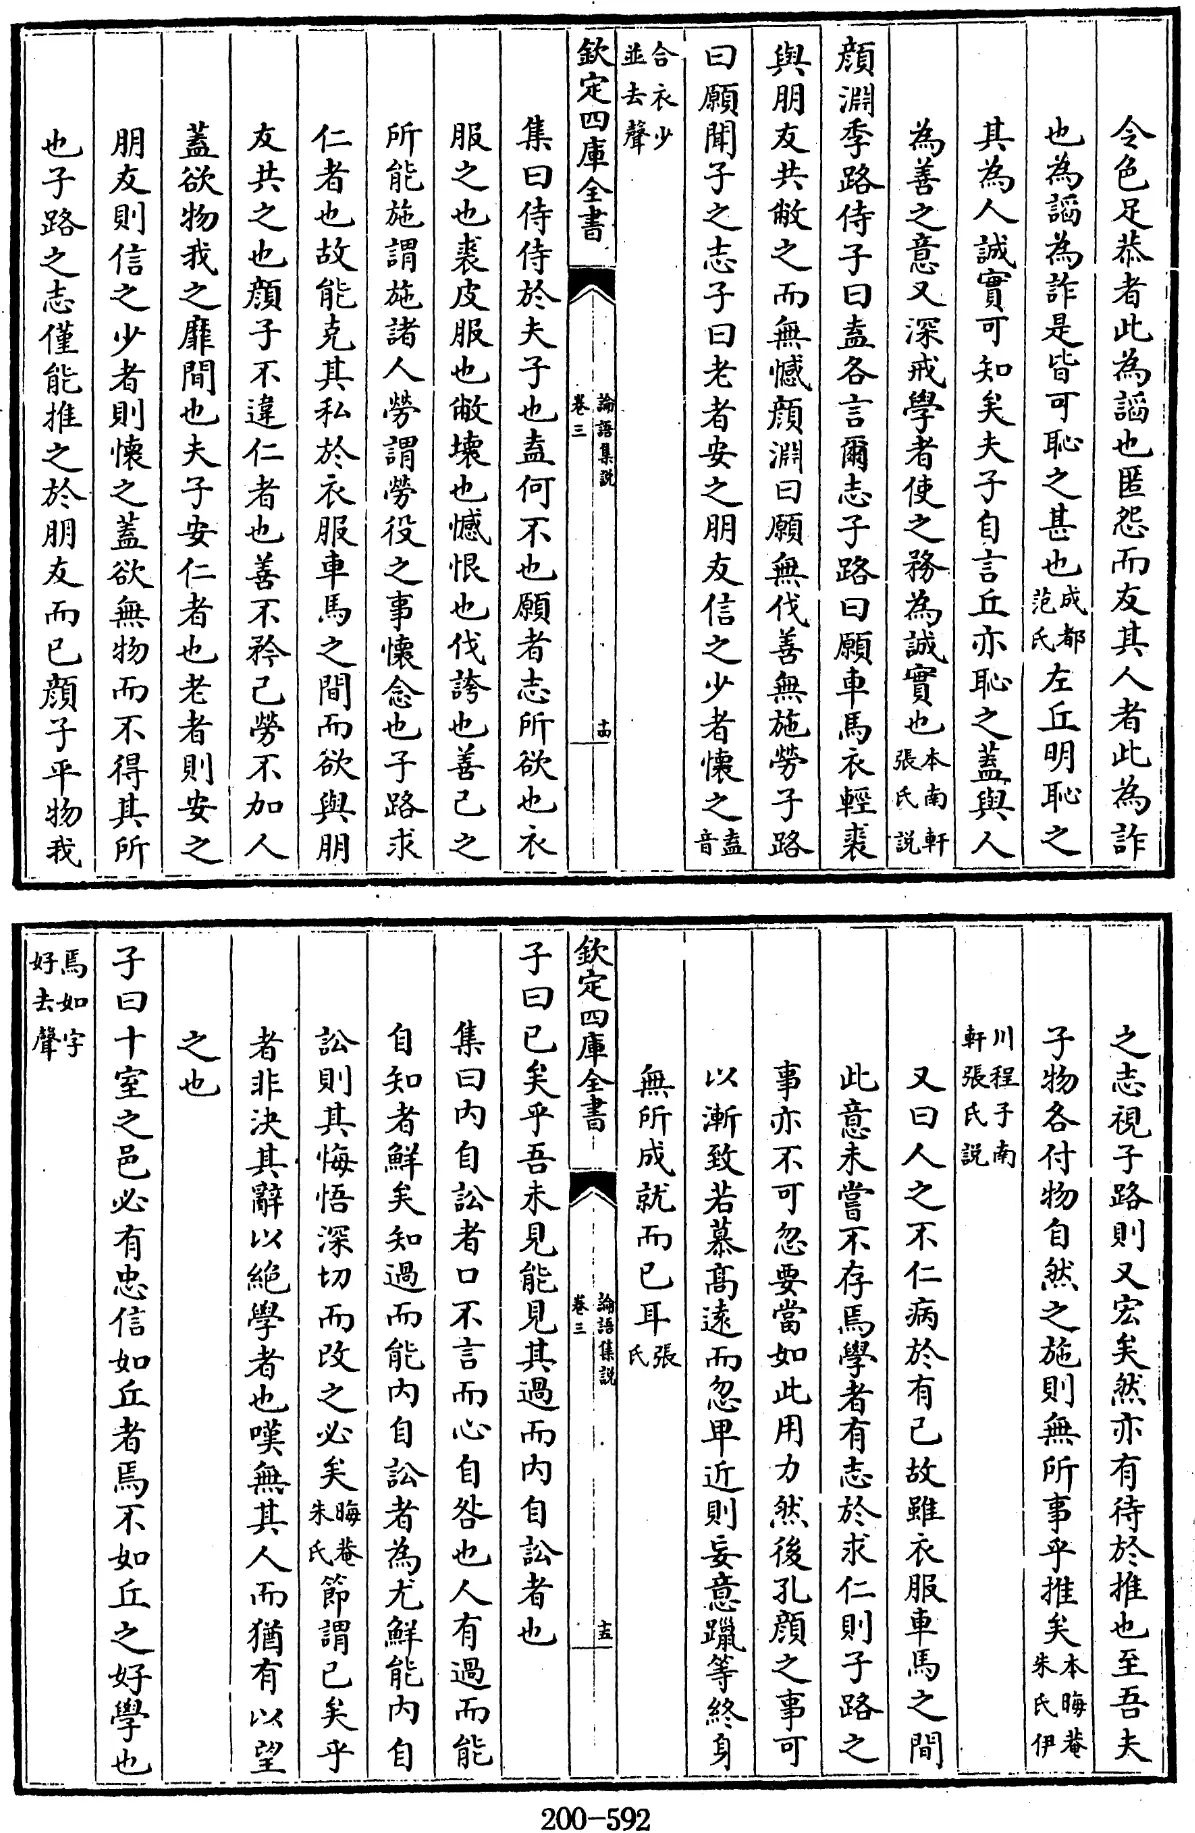 令色足恭者此為謟也匿怨而友其人者此為詐
也為謟為詐是皆可恥之甚也成都范氏左丘明恥之
其為人誠實可知矣夫子自言丘亦恥之蓋與人
為善之意又深戒學者使之務為誠實也本南軒張氏說
顔淵季路侍子曰盍各言爾志子路曰願車馬衣輕裘
與朋友共敝之而無憾顔淵曰願無伐善無施勞子路
曰願聞子之志子曰老者安之朋友信之少者懷之盍音
合衣少並去聲
欽定四庫全書
論語集說
卷三
十四
集曰侍侍於夫子也盍何不也願者志所欲也衣
服之也裘皮服也敝壊也憾恨也伐誇也善己之
所能施謂施諸人勞謂勞役之事懷念也子路求
仁者也故能克其私於衣服車馬之間而欲與朋
友共之也顔子不違仁者也善不矜己勞不加人
蓋欲物我之靡間也夫子安仁者也老者則安之
朋友則信之少者則懷之蓋欲無物而不得其所
也子路之志僅能推之於朋友而已顔子平物我
之志視子路則又宏矣然亦有待於推也至吾夫
子物各付物自然之施則無所事乎推矣本晦菴朱氏伊
川程子南軒張氏説
又曰人之不仁病於有己故雖衣服車馬之間
此意未嘗不存焉學者有志於求仁則子路之
事亦不可忽要當如此用力然後孔顔之事可
以漸致若慕髙遠而忽卑近則妄意躐等終身
無所成就而已耳張氏
欽定四庫全書
論語集說
卷三
十五
子曰已矣乎吾未見能見其過而内自訟者也
集曰内自訟者口不言而心自咎也人有過而能
自知者鮮矣知過而能内自訟者為尤鮮能内自
訟則其悔悟深切而改之必矣晦菴朱氏節謂已矣乎
者非決其辭以絶學者也嘆無其人而猶有以望
之也
子曰十室之邑必有忠信如丘者焉不如丘之好學也
焉如字好去聲
200-592